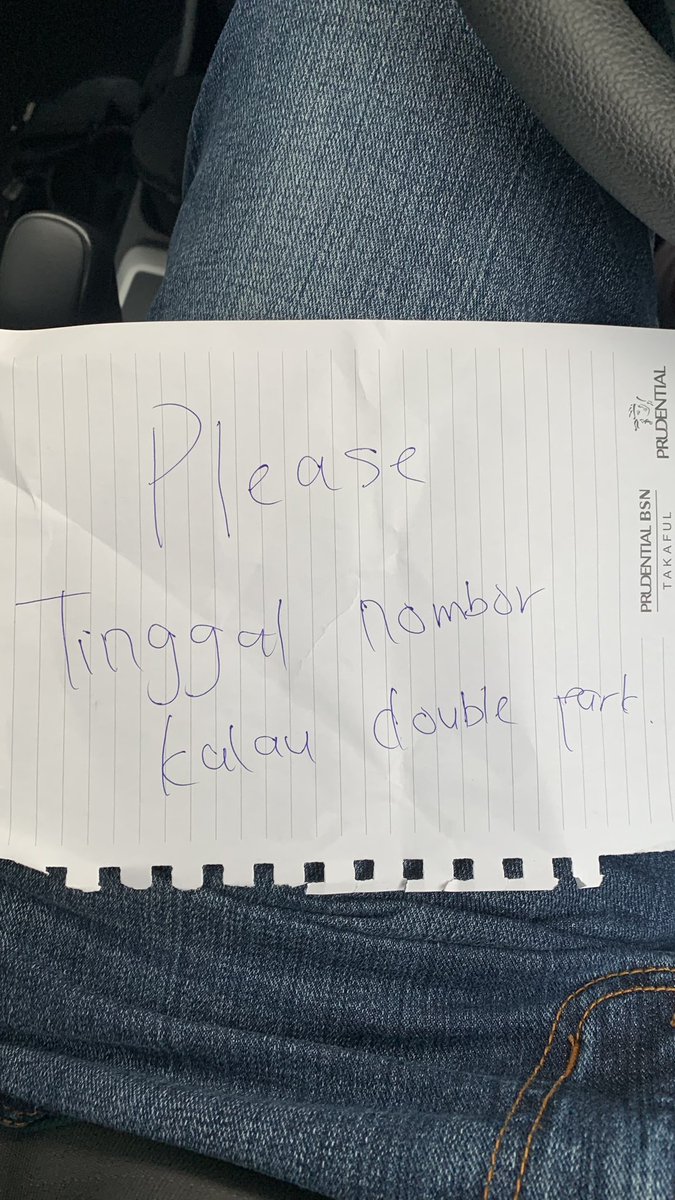 Please
Tinggal nombor
kalau double park.
PRUDENTIAL BSN
TAKAFUL
PRUDENTIAL